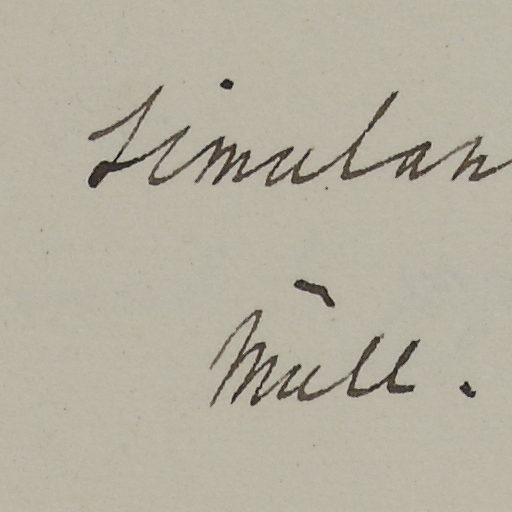 simulan
Müll.